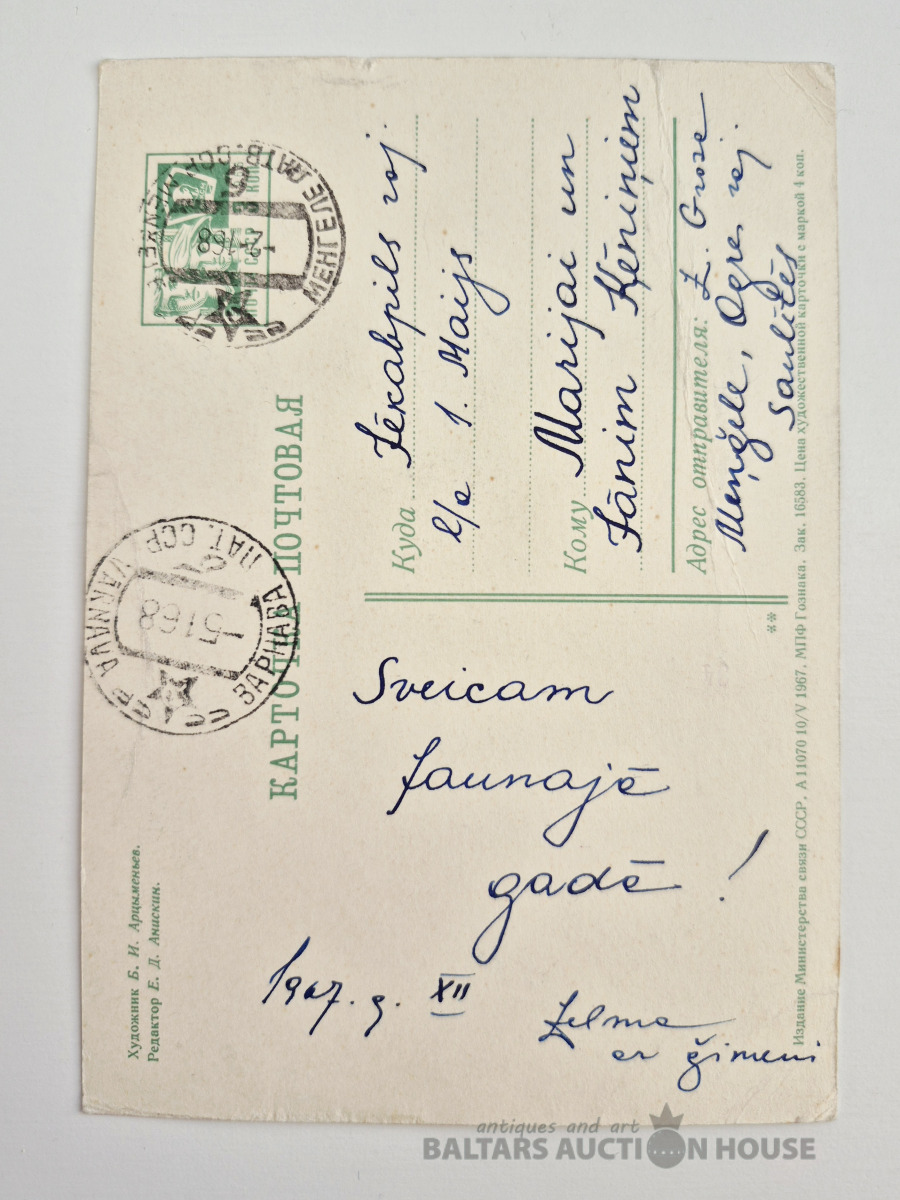 Художник Б. И. Арцыменьев.
Редактор Е. Д. Анискин.
КАРТОЧКА ПОЧТОВАЯ
VĀRNAVA ЛАТ. ССР
-5168
СССР ВАРНАВА
МЕНГЕЛЕ ЛАТВ. ССР
-2-168
Куда Jēkabpils raj
c/e 1. Maijs
Кому Marijai un
Jānim Ķēniņiem
Адрес отправителя: Z. Grose
Meņģele, Ogres raj.
Saulītes
Sveicam
Jaunajā
gadā!
1967. g. XII
Zelma
ar ģimeni
**
Издание Министерства связи СССР. А 11070 10/V 1967. МПФ Гознака. Зак. 16583. Цена художественной карточки с маркой 4 коп.
antiques and art
BALTARS AUCTION HOUSE